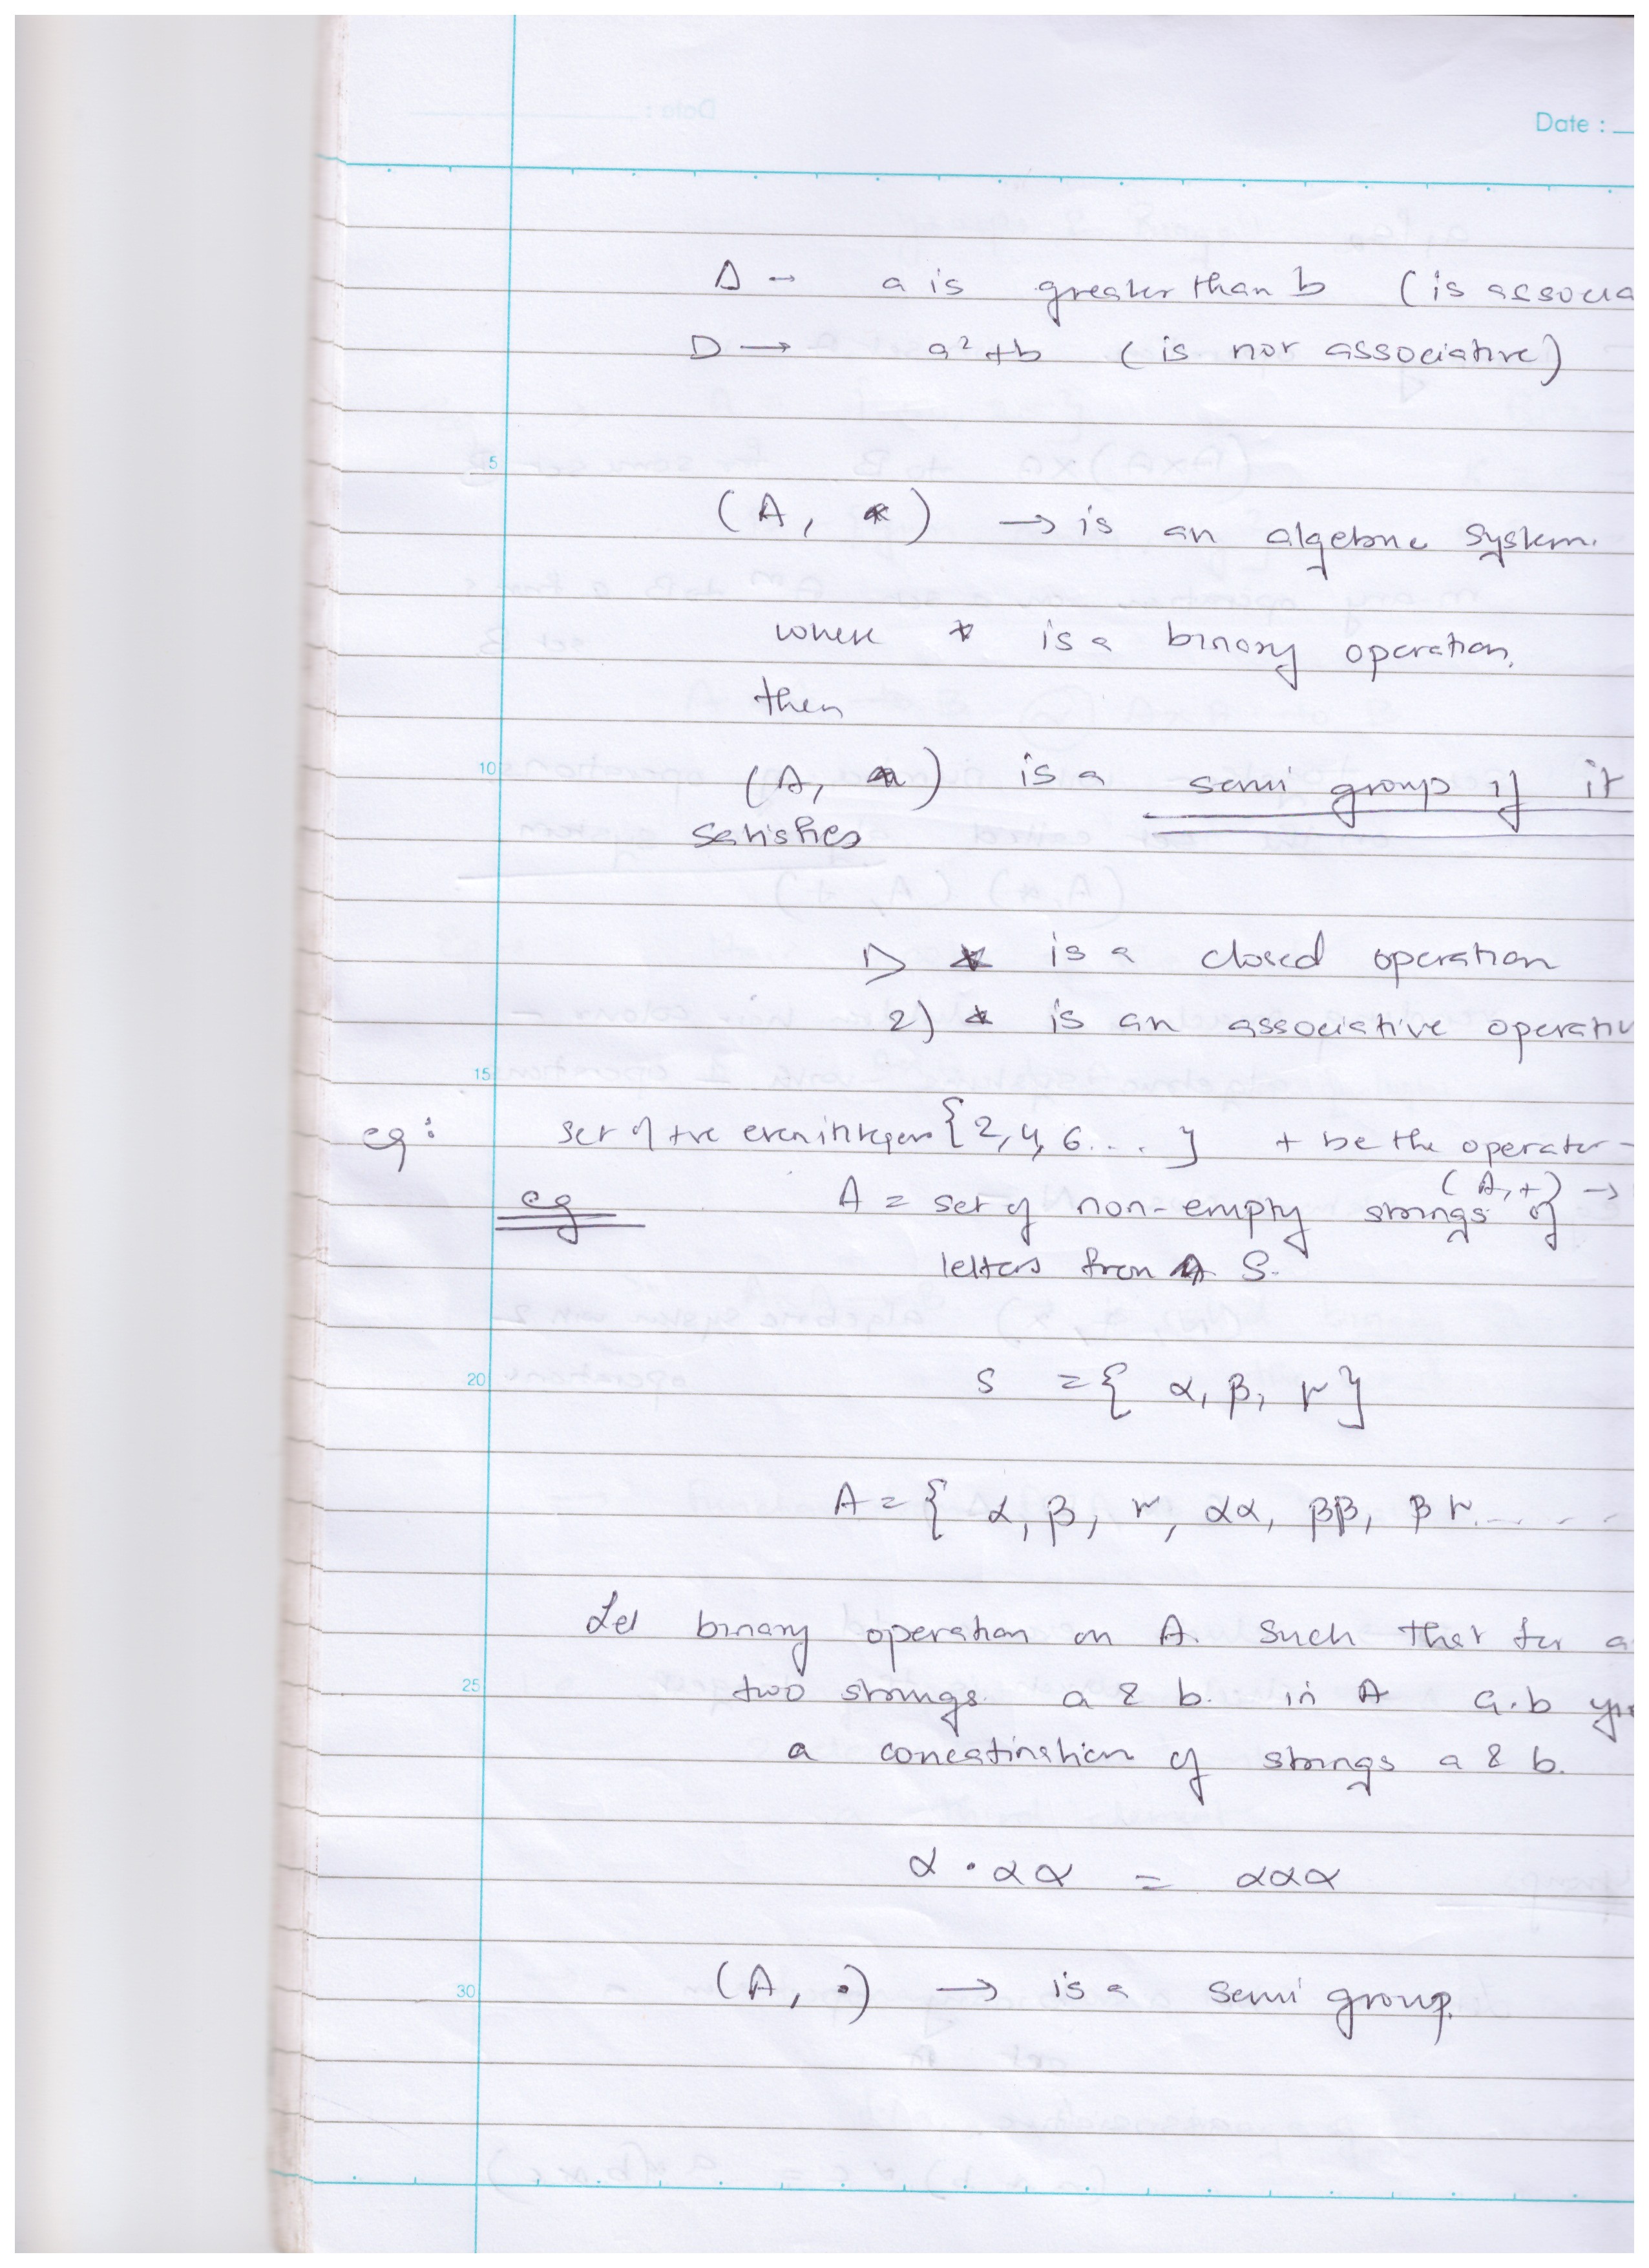 Date :
Δ → a is greater than b (is associa
D → a² + b (is not associative)
5
(A, *) → is an algebric system.
where * is a binary operation.
then
10
(A, *) is a semi group if it
satisfies
1) * is a closed operation
2) * is an associative operatio
15
eg : set of +ve even integers {2, 4, 6 ....} + be the operator
(A, +) →
eg A = set of non-empty strings of
letters from S.
20
S = { α, β, r }
A = { α, β, r, αα, ββ, βr.....
Let binary operation on A. Such that for a
25
two strings. a & b. in A a.b yie
a concatination of strings a & b.
α . αα = ααα
30
(A, .) → is a semi group.